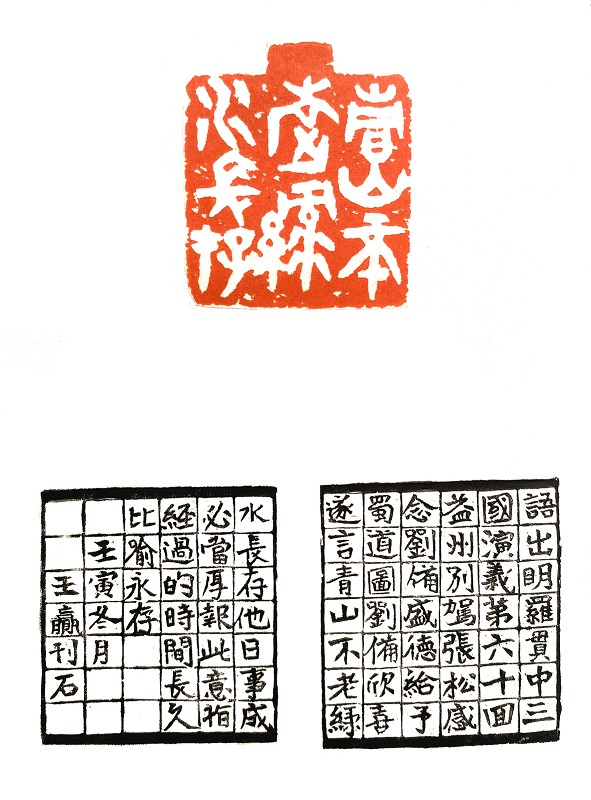 青山不
老綠
水長存
語出明羅貫中三
國演義第六十回
益州別駕張松感
念劉備盛德給予
蜀道圖劉備欣喜
遂言青山不老綠
水長存他日事成
必當厚報此意指
經過的時間長久
比喻永存
壬寅冬月
王贏刊石